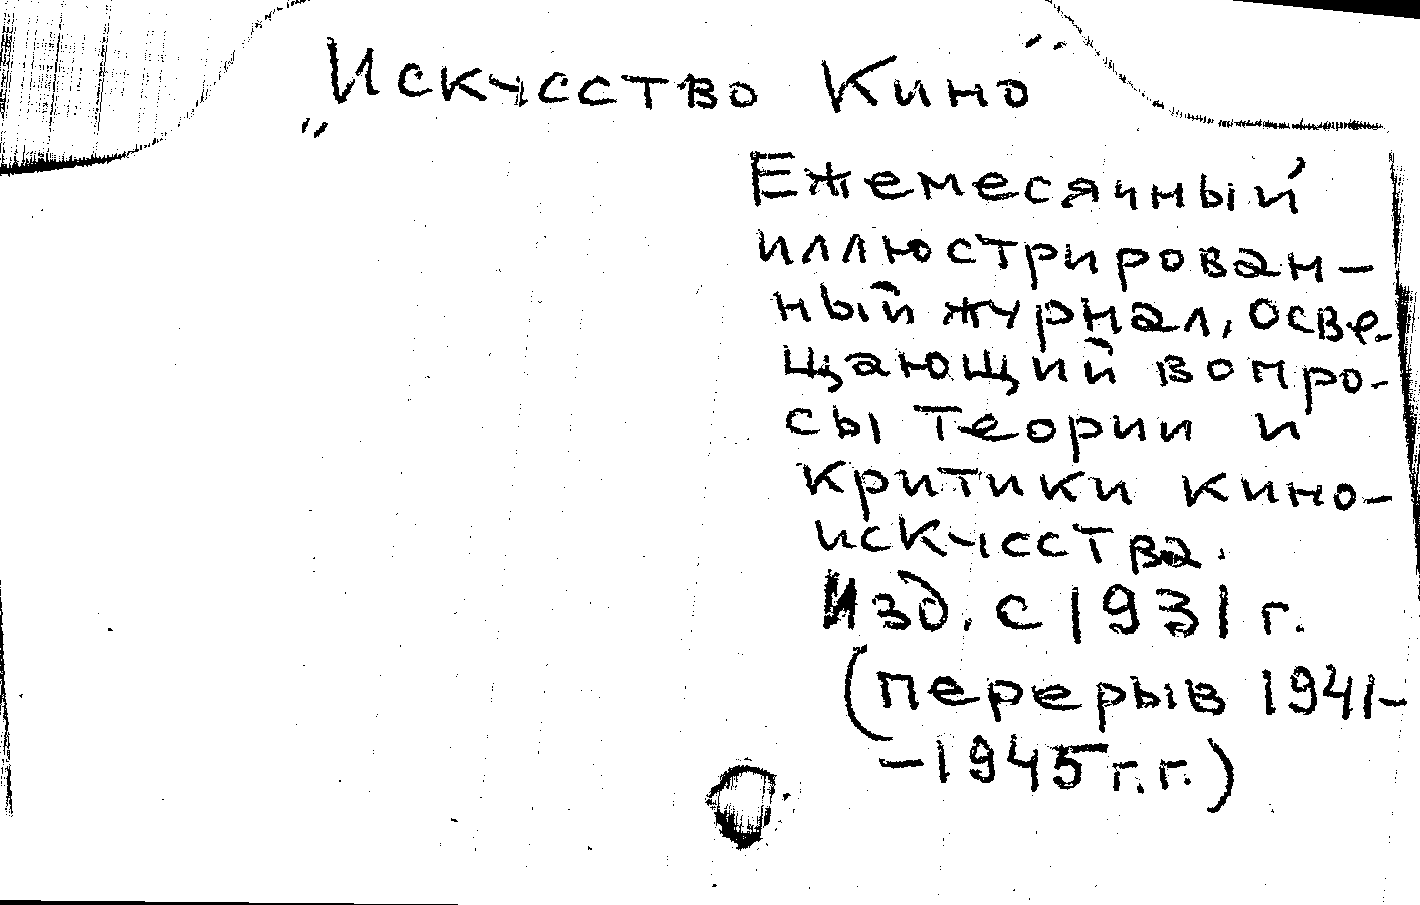 "Искусство Кино"
Ежемесячный
иллюстрирован-
ный журнал, осве-
щающий вопро-
сы теории и
критики кино-
искусства.
Изд. с 1931 г.
(перерыв 1941-
-1945 г.г.)